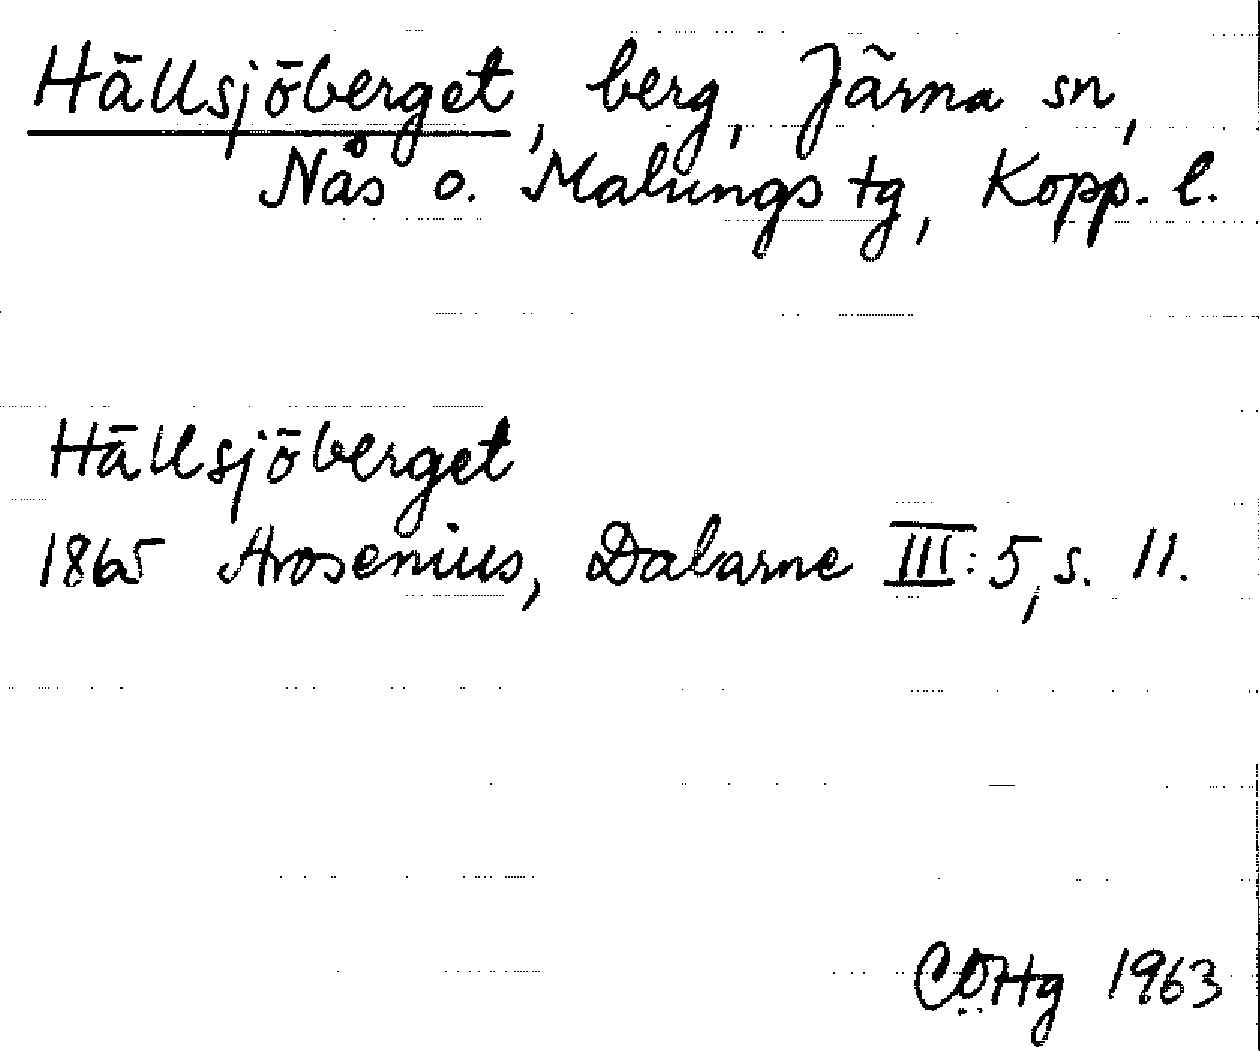 Hällsjöberget, berg, Järna sn,
Nås o. Malungs tg, Kopp. l.
Hällsjöberget
1865 Arosenius, Dalarne III: 5, s. 11.
CÖHg 1963